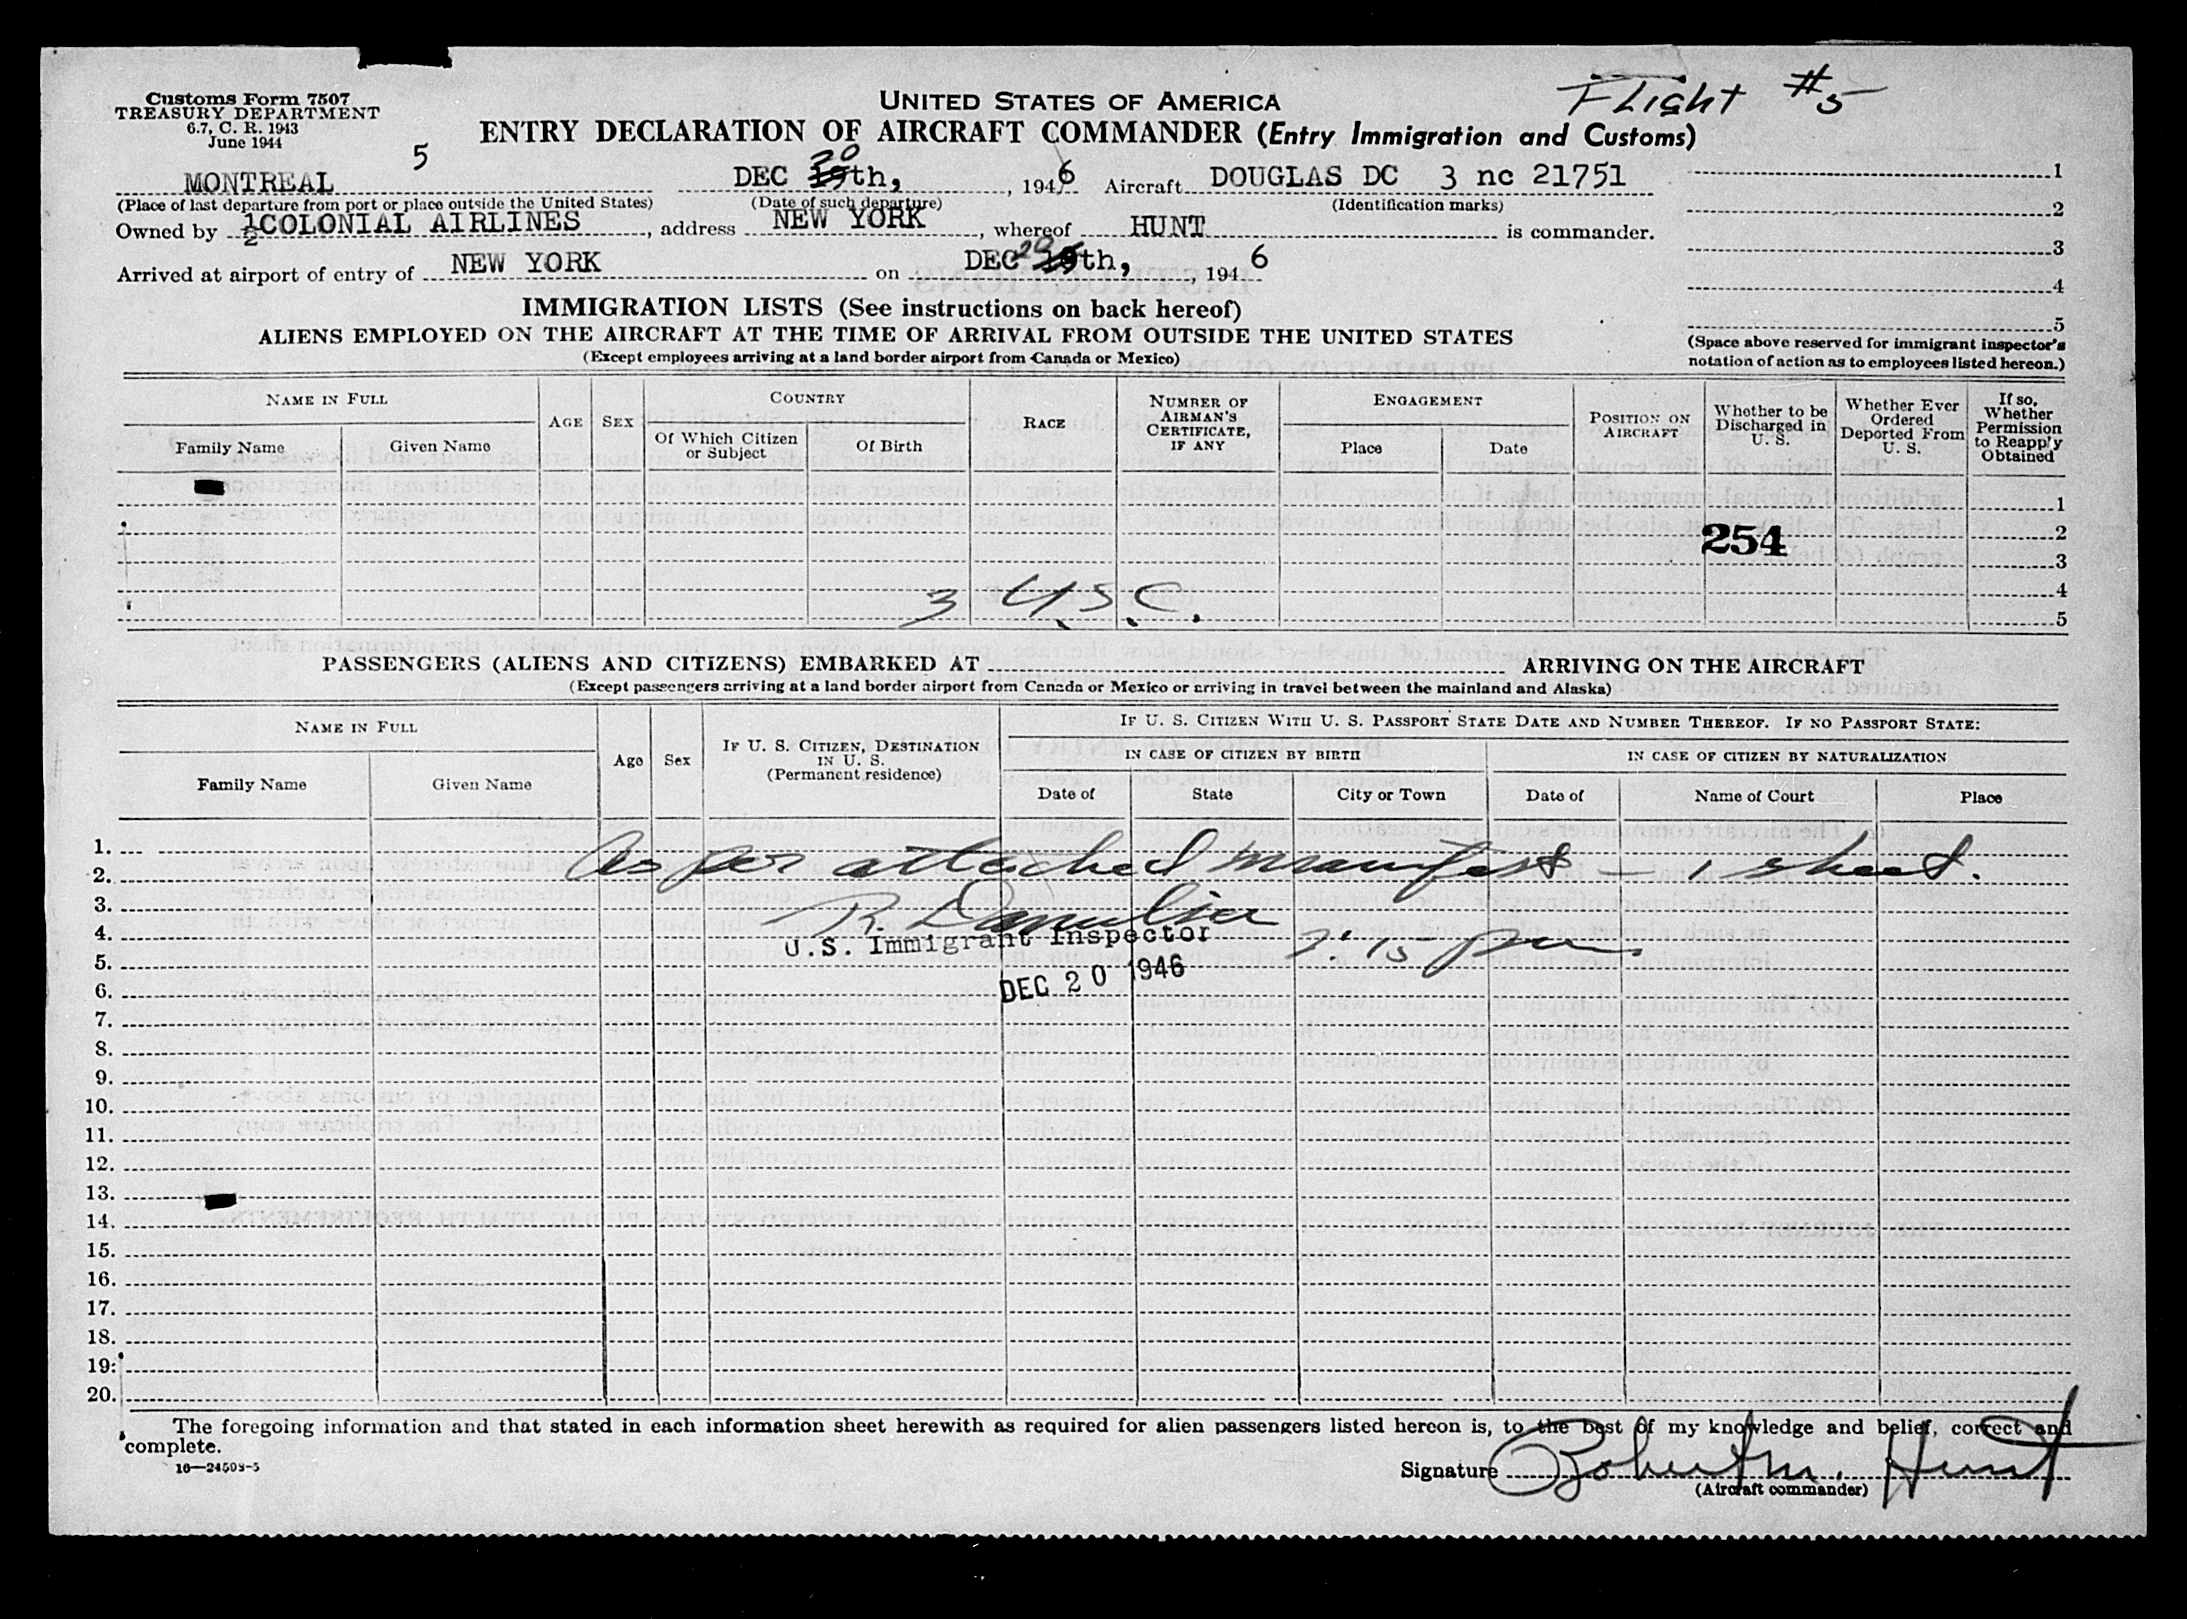 Customs Form 7507
TREASURY DEPARTMENT
6.7, C. R. 1943
June 1944
UNITED STATES OF AMERICA
Flight #5
ENTRY DECLARATION OF AIRCRAFT COMMANDER (Entry Immigration and Customs)
5
MONTREAL DEC 20 19th, , 1946 Aircraft DOUGLAS DC 3 nc 21751
(Place of last departure from port or place outside the United States) (Date of such departure) (Identification marks)
Owned by ½COLONIAL AIRLINES, address NEW YORK, whereof HUNT is commander.
Arrived at airport of entry of NEW YORK on DEC 20 th, , 1946
1
2
3
4
5
(Space above reserved for immigrant inspector's
notation of action as to employees listed hereon.)
IMMIGRATION LISTS (See instructions on back hereof)
ALIENS EMPLOYED ON THE AIRCRAFT AT THE TIME OF ARRIVAL FROM OUTSIDE THE UNITED STATES
(Except employees arriving at a land border airport from Canada or Mexico)
NAME IN FULL
Family Name Given Name
AGE SEX
COUNTRY
Of Which Citizen or Subject
Of Birth
RACE
NUMBER OF AIRMAN'S CERTIFICATE, IF ANY
ENGAGEMENT
Place Date
POSITION ON AIRCRAFT
Whether to be Discharged in U. S.
Whether Ever Ordered Deported From U. S.
If so, Whether Permission to Reapply Obtained
1
254 2
3
3 U.S.C. 4
5
PASSENGERS (ALIENS AND CITIZENS) EMBARKED AT ARRIVING ON THE AIRCRAFT
(Except passengers arriving at a land border airport from Canada or Mexico or arriving in travel between the mainland and Alaska)
NAME IN FULL
Family Name Given Name
Age Sex
IF U. S. CITIZEN, DESTINATION IN U. S.
(Permanent residence)
IF U. S. CITIZEN WITH U. S. PASSPORT STATE DATE AND NUMBER THEREOF. IF NO PASSPORT STATE:
IN CASE OF CITIZEN BY BIRTH IN CASE OF CITIZEN BY NATURALIZATION
Date of State City or Town Date of Name of Court Place
1.
2. As per attached manifest - 1 sheet.
3. R.
4. U.S. Immigrant Inspector
5. 7:15 pm
6. DEC 20 1946
7.
8.
9.
10.
11.
12.
13.
14.
15.
16.
17.
18.
19.
20.
The foregoing information and that stated in each information sheet herewith as required for alien passengers listed hereon is, to the best of my knowledge and belief, correct and
complete.
16—24508-5
Signature Robert M. Hunt
(Aircraft commander)